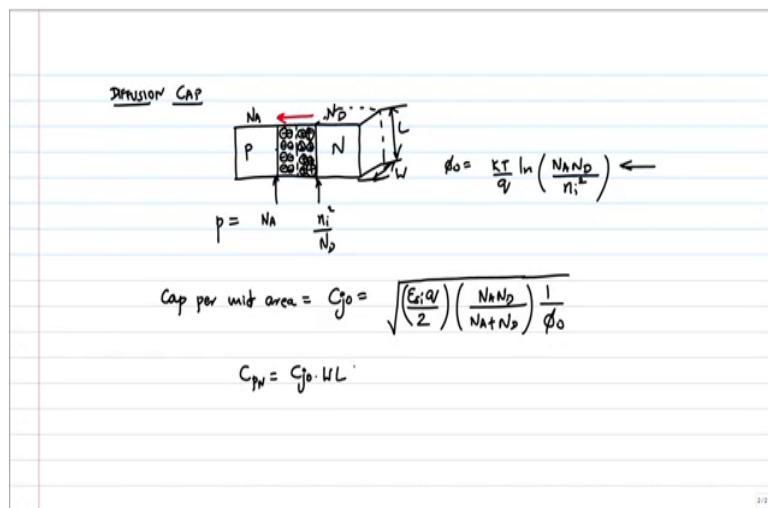 DIFFUSION CAP
NA ND
P N L
W
ϕ0 = KT/q ln(NAND/ni²)
p = NA ni²/ND
Cap per unit area = Cj0 = √((εsi q/2)(NAND/(NA+ND)) 1/ϕ0)
CPN = Cj0·WL
2/2